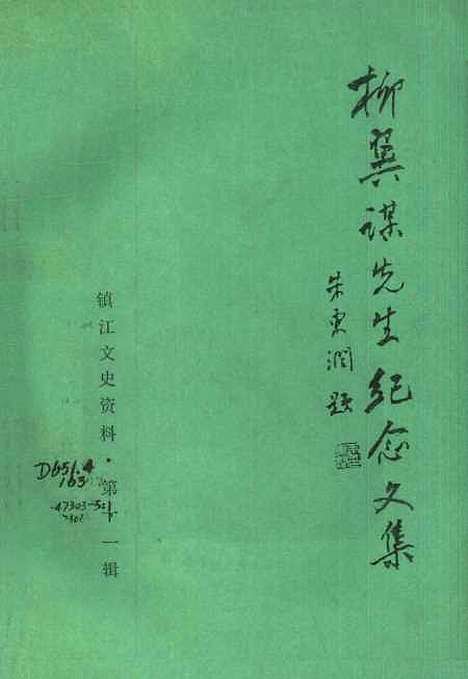 柳翼谋先生纪念文集
朱东润题
镇江文史资料·第十一辑
D651.4
163